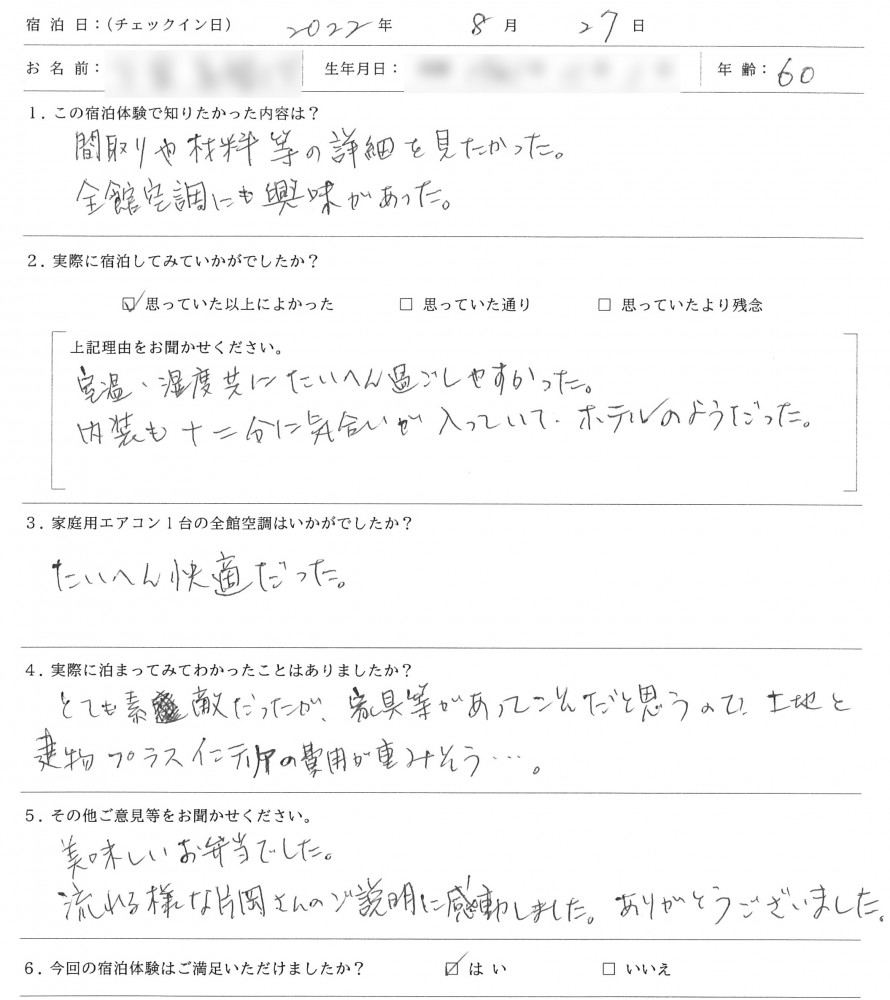 宿泊日:(チェックイン日) 2022年 8月 27日
お名前: 生年月日: 年齢:60
1. この宿泊体験で知りたかった内容は?
間取りや材料等の詳細を見たかった。
全館空調にも興味があった。
2. 実際に宿泊してみていかがでしたか?
☑ 思っていた以上によかった □ 思っていた通り □ 思っていたより残念
上記理由をお聞かせください。
室温・湿度共にたいへん過ごしやすかった。
内装も十二分に気合いが入っていて、ホテルのようだった。
3. 家庭用エアコン1台の全館空調はいかがでしたか?
たいへん快適だった。
4. 実際に泊まってみてわかったことはありましたか?
とても素敵だったが、家具等があってこそだと思うので、土地と
建物プラスインテリアの費用が重みそう…。
5. その他ご意見等をお聞かせください。
美味しいお弁当でした。
流れる様な片岡さんのご説明に感動しました。ありがとうございました。
6. 今回の宿泊体験はご満足いただけましたか? ☑ はい □ いいえ